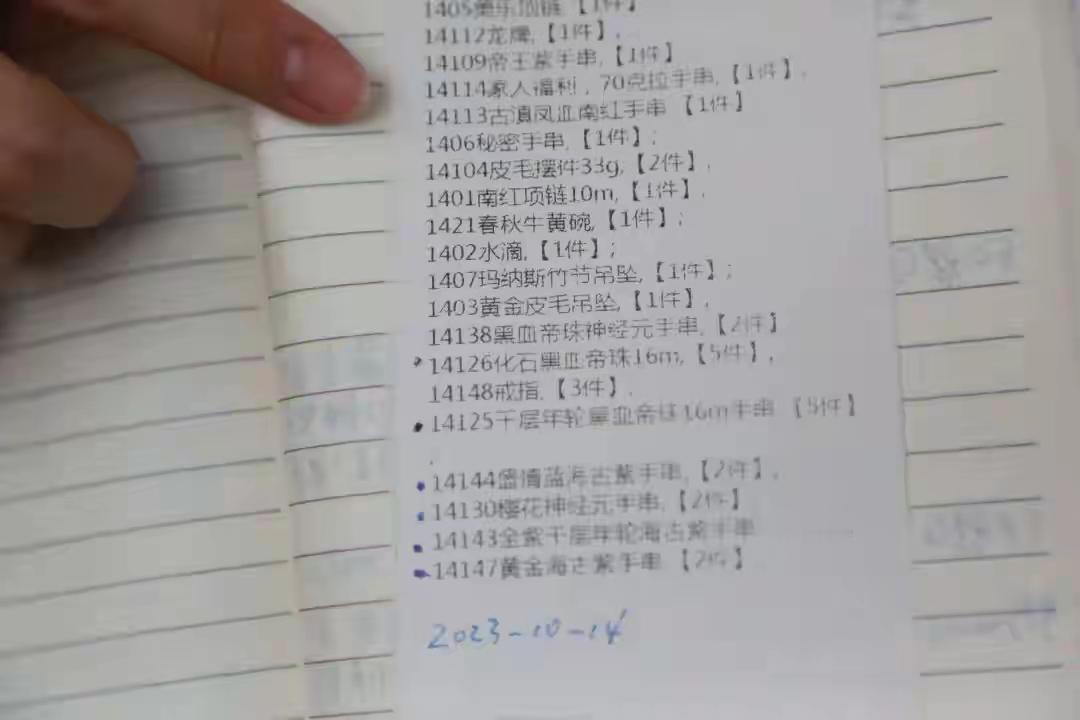 14112龙牌,【1件】,
14109帝王紫手串,【1件】
14114家人福利，70克拉手串,【1件】,
14113古滇凤血南红手串【1件】
1406秘密手串,【1件】;
14104皮毛摆件33g,【2件】,
1401南红项链10m,【1件】,
1421春秋牛黄碗,【1件】;
1402水滴,【1件】;
1407玛纳斯竹节吊坠,【1件】;
1403黄金皮毛吊坠,【1件】,
14138黑血帝珠神经元手串,【2件】
14126化石黑血帝珠16m,【5件】,
14148戒指,【3件】,
14125千层年轮黑血帝珠16m手串【5件】
14144盛情蓝海古紫手串,【2件】,
14130樱花神经元手串,【2件】
14143全紫千层年轮海古紫手串
14147黄金海古紫手串【2件】
2023-10-14